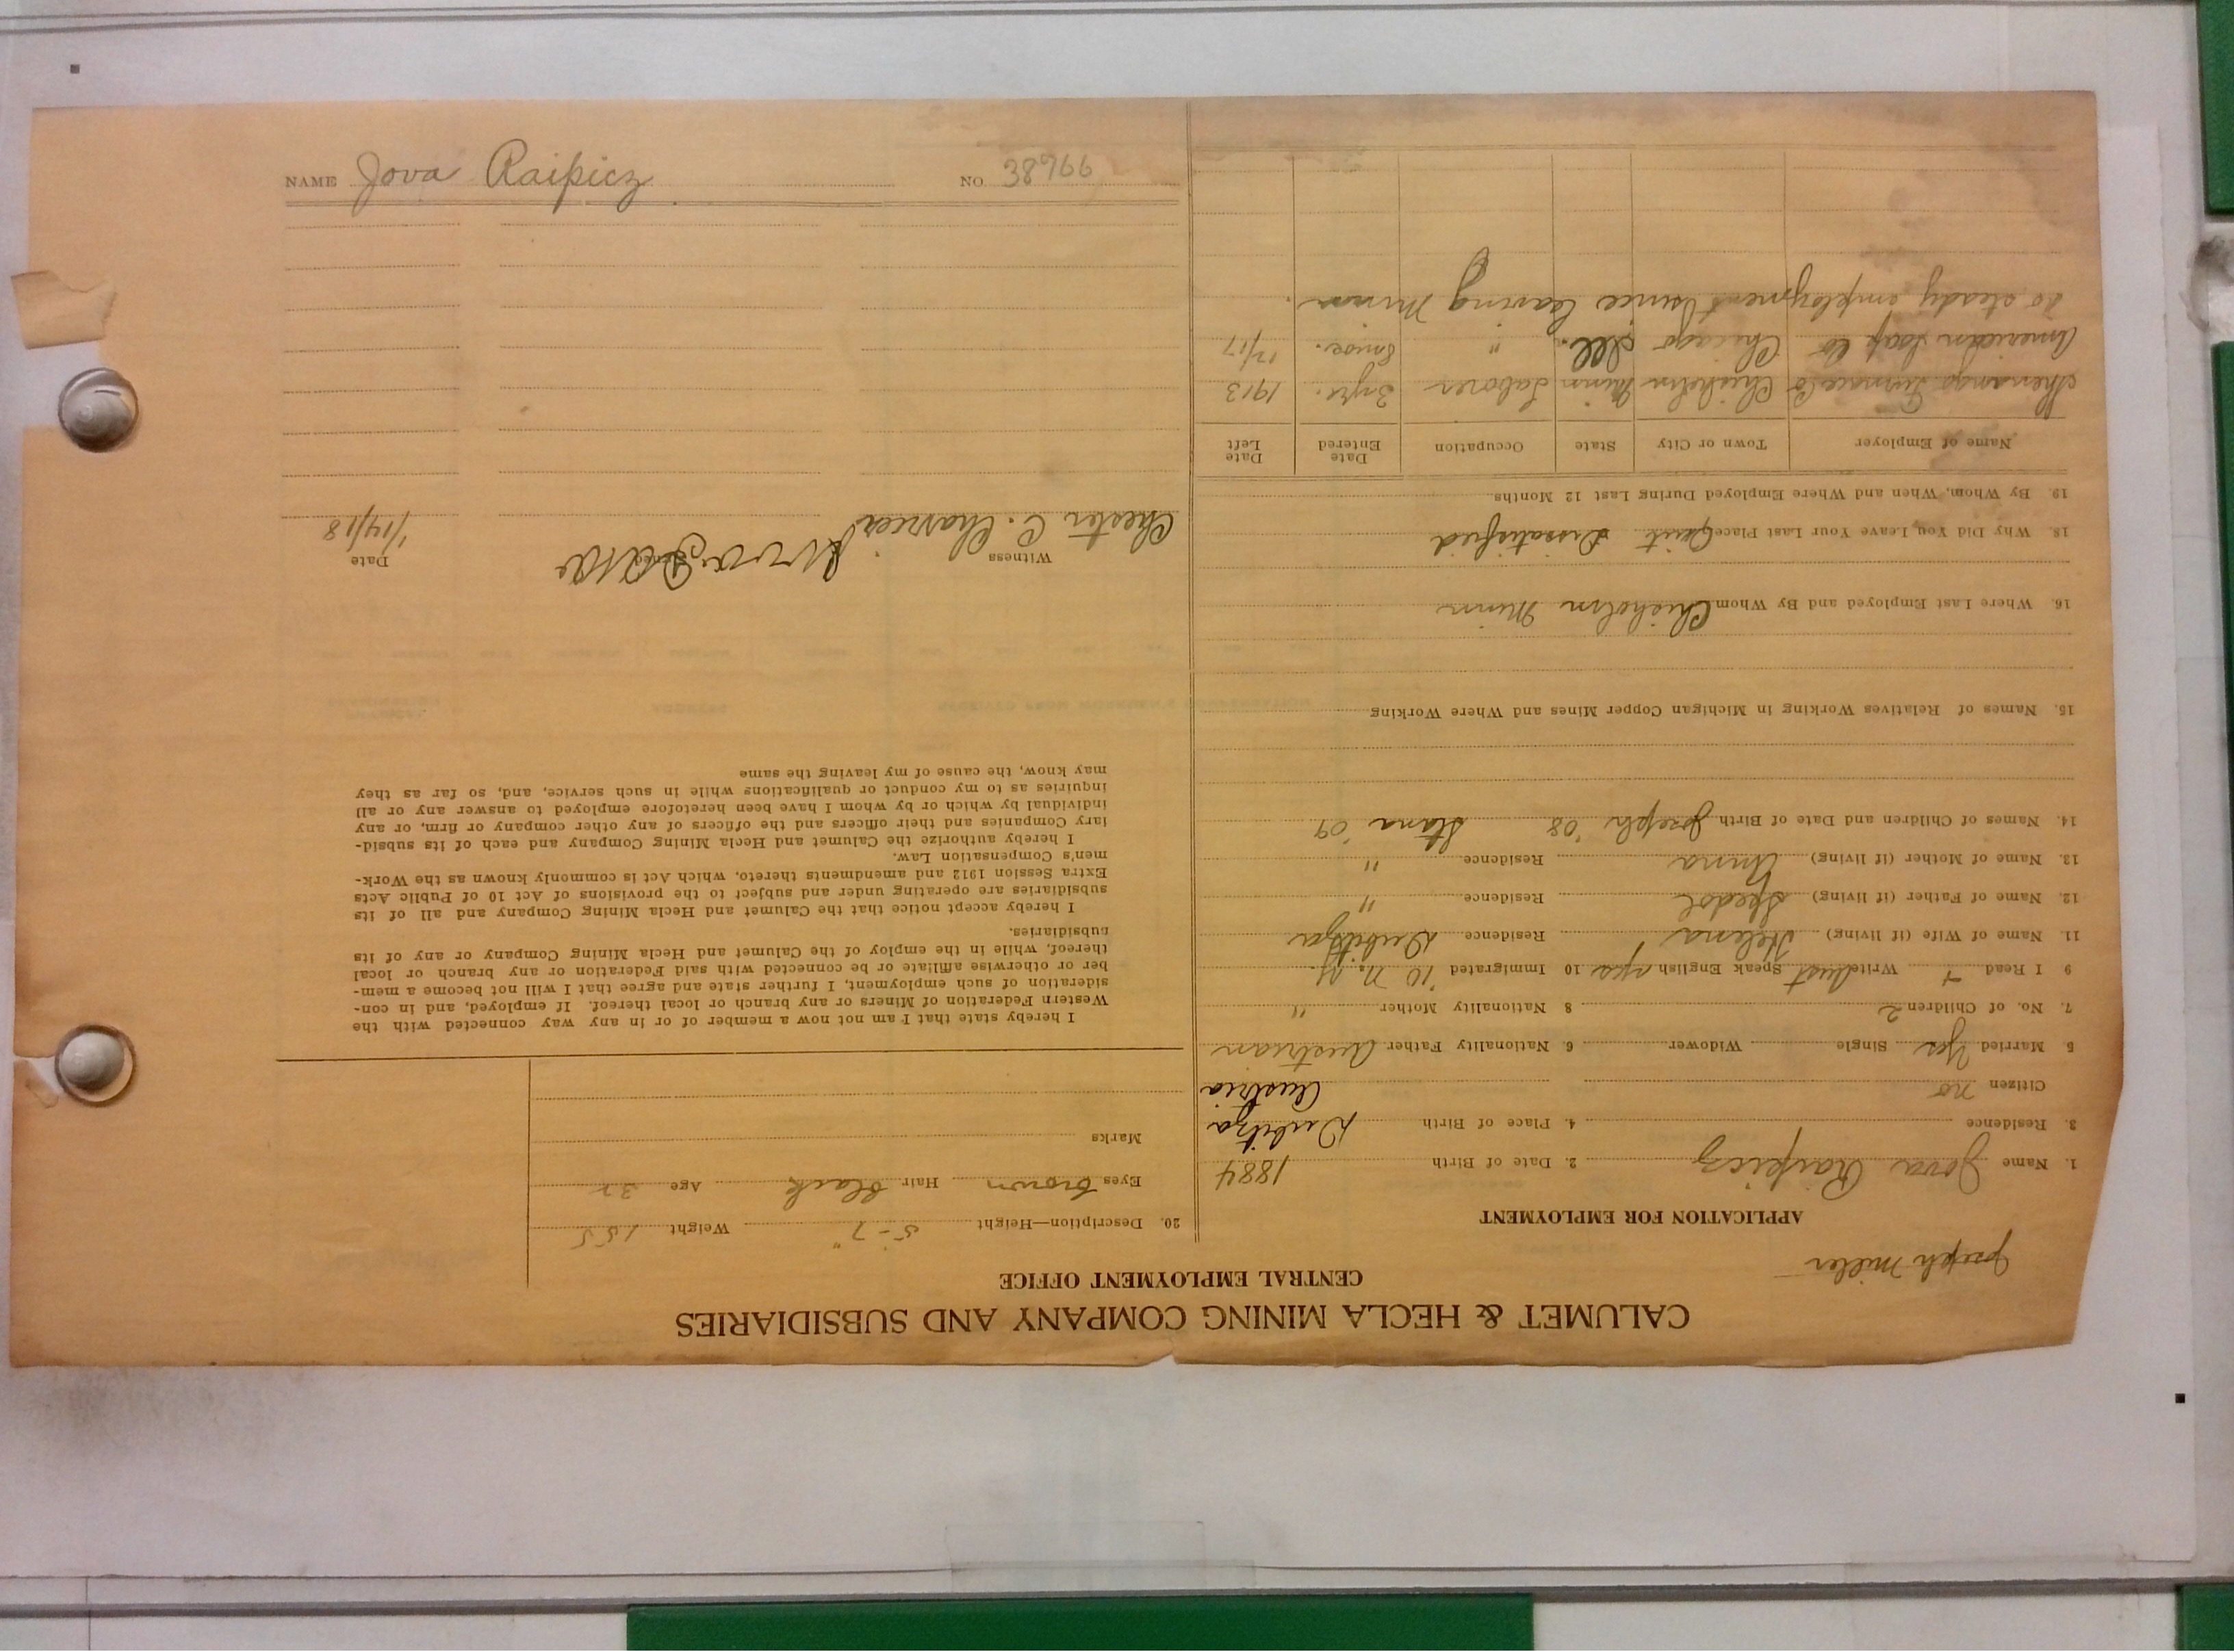 NAME Jova Raipicz NO. 38966
CALUMET & HECLA MINING COMPANY AND SUBSIDIARIES
CENTRAL EMPLOYMENT OFFICE
Joseph Miller
APPLICATION FOR EMPLOYMENT
1. Name Jova Raipicz 2. Date of Birth 1884
3. Residence 4. Place of Birth Dubitza
Citizen no Austria
5 Married Yes Single Widower 6. Nationality Father Austrian
7. No. of Children 2 8 Nationality Mother "
9 I Read + Write Speak English yes 10 Immigrated '10 N.Y.
11. Name of Wife (if living) Helena Residence Dubitza
12. Name of Father (if living) Residence "
13. Name of Mother (if living) Anna Residence "
14. Names of Children and Date of Birth Joseph '08 Stana '09
15. Names of Relatives Working in Michigan Copper Mines and Where Working
16. Where Last Employed and By Whom Chisholm Minn
18. Why Did You Leave Your Last Place Quit Dissatisfied
19. By Whom, When and Where Employed During Last 12 Months
Name of Employer Town or City State Occupation Date Entered Date Left
Shenango Furnace Co Chisholm Minn Laborer 3 yrs. 1913
American Soap Co Chicago Ill. " 8 mos. 12/17
steady employment since leaving Minn.
20. Description—Height 5-7" Weight 155
Eyes brown Hair black Age 32
Marks
I hereby state that I am not now a member of or in any way connected with the
Western Federation of Miners or any branch or local thereof. If employed, and in con-
sideration of such employment, I further state and agree that I will not become a mem-
ber or otherwise affiliate or be connected with said Federation or any branch or local
thereof, while in the employ of the Calumet and Hecla Mining Company or any of its
subsidiaries.
I hereby accept notice that the Calumet and Hecla Mining Company and all of its
subsidiaries are operating under and subject to the provisions of Act 10 of Public Acts
Extra Session 1912 and amendments thereto, which Act is commonly known as the Work-
men's Compensation Law.
I hereby authorize the Calumet and Hecla Mining Company and each of its subsid-
iary Companies and their officers and the officers of any other company or firm, or any
individual by which or by whom I have been heretofore employed to answer any or all
inquiries as to my conduct or qualifications while in such service, and, so far as they
may know, the cause of my leaving the same
Witness Date
Chester C. 1/14/18